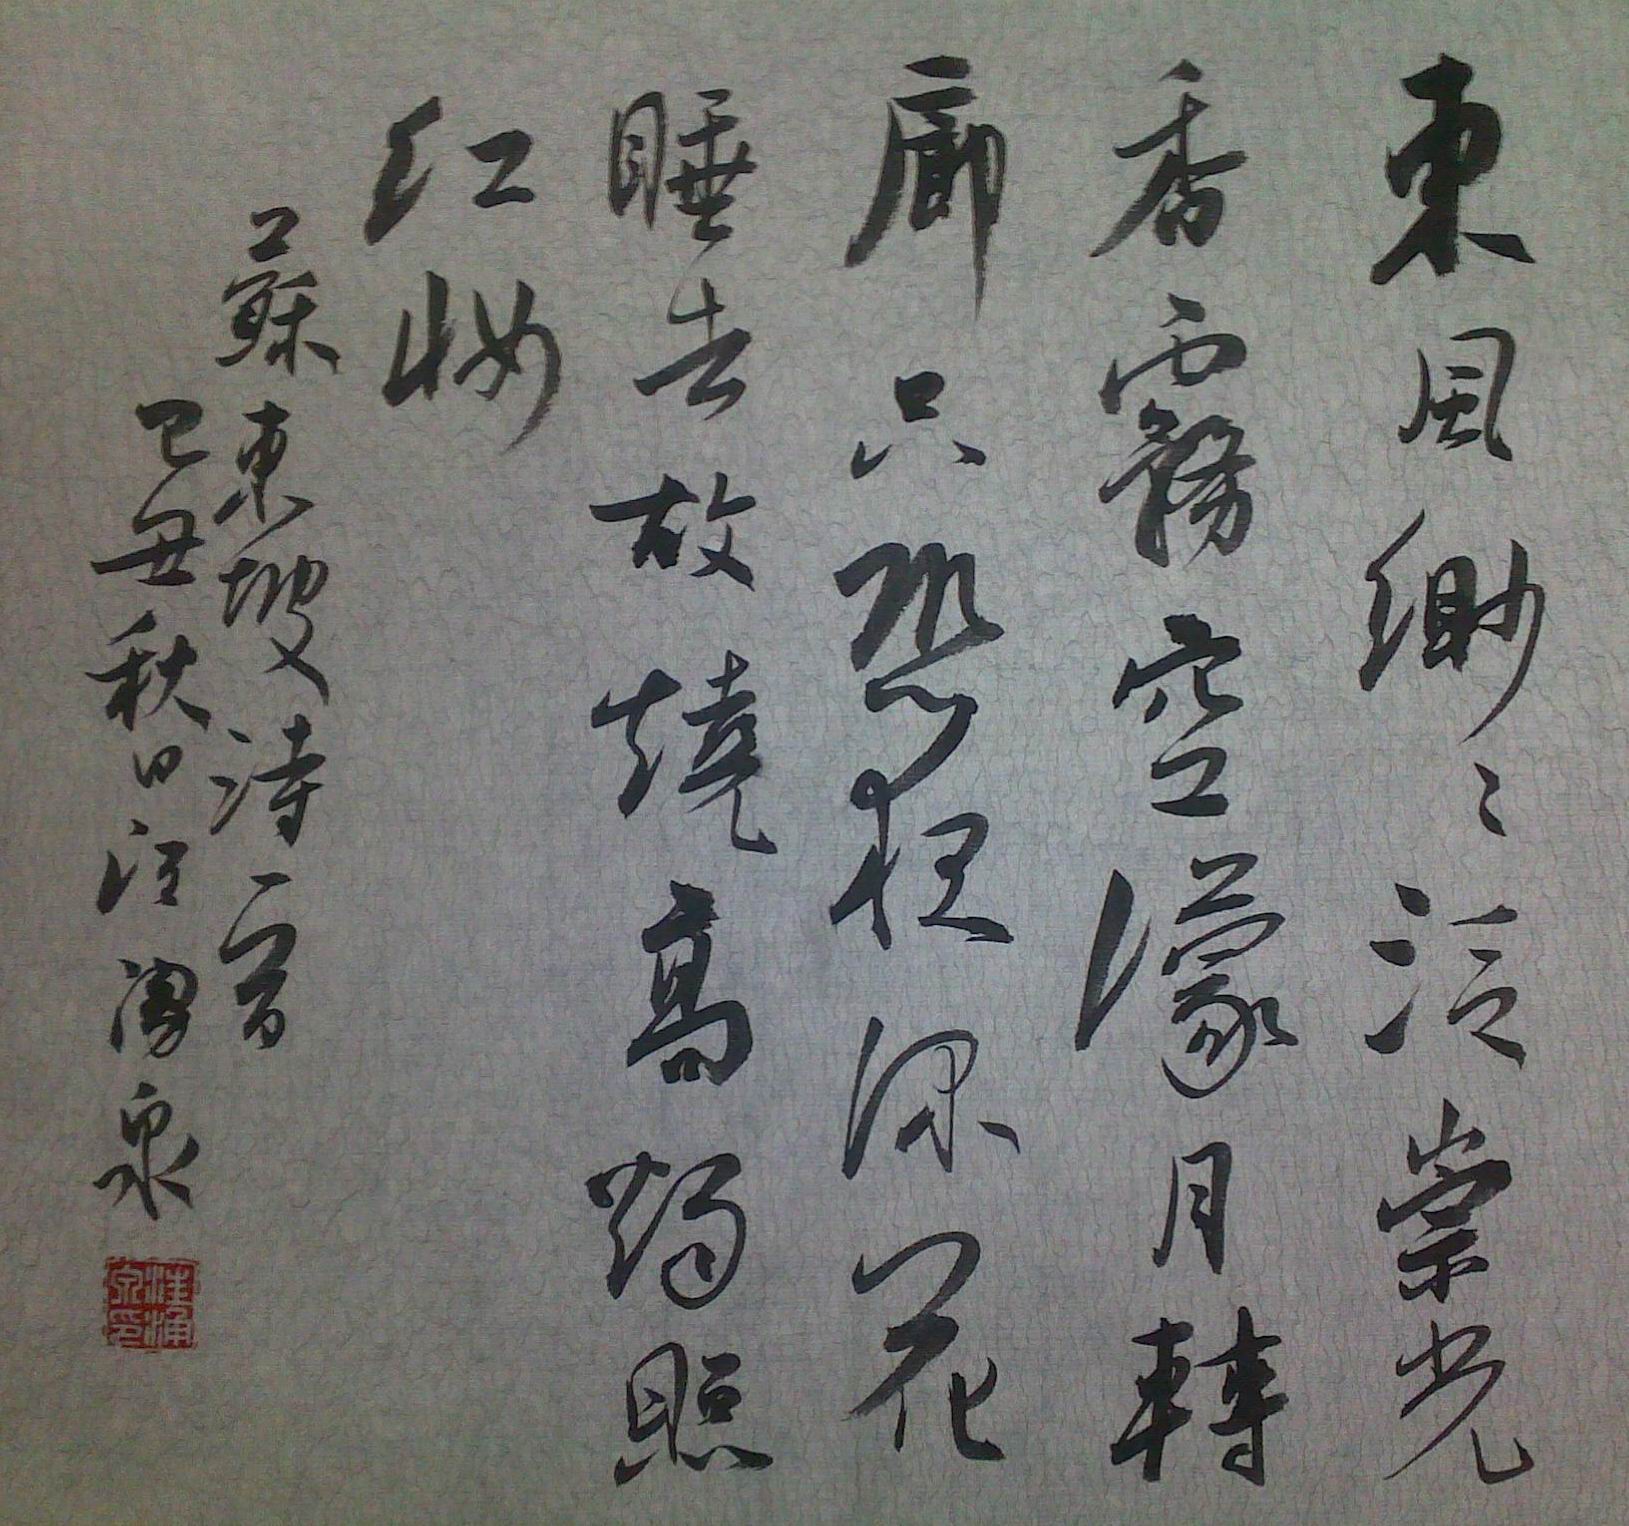 東風緲〻泛崇光
香霧空濛月轉
廊只恐夜深花
睡去故燒高燭照
紅妝
蘇東坡詩一首
己丑秋日汪湧泉
汪湧泉印